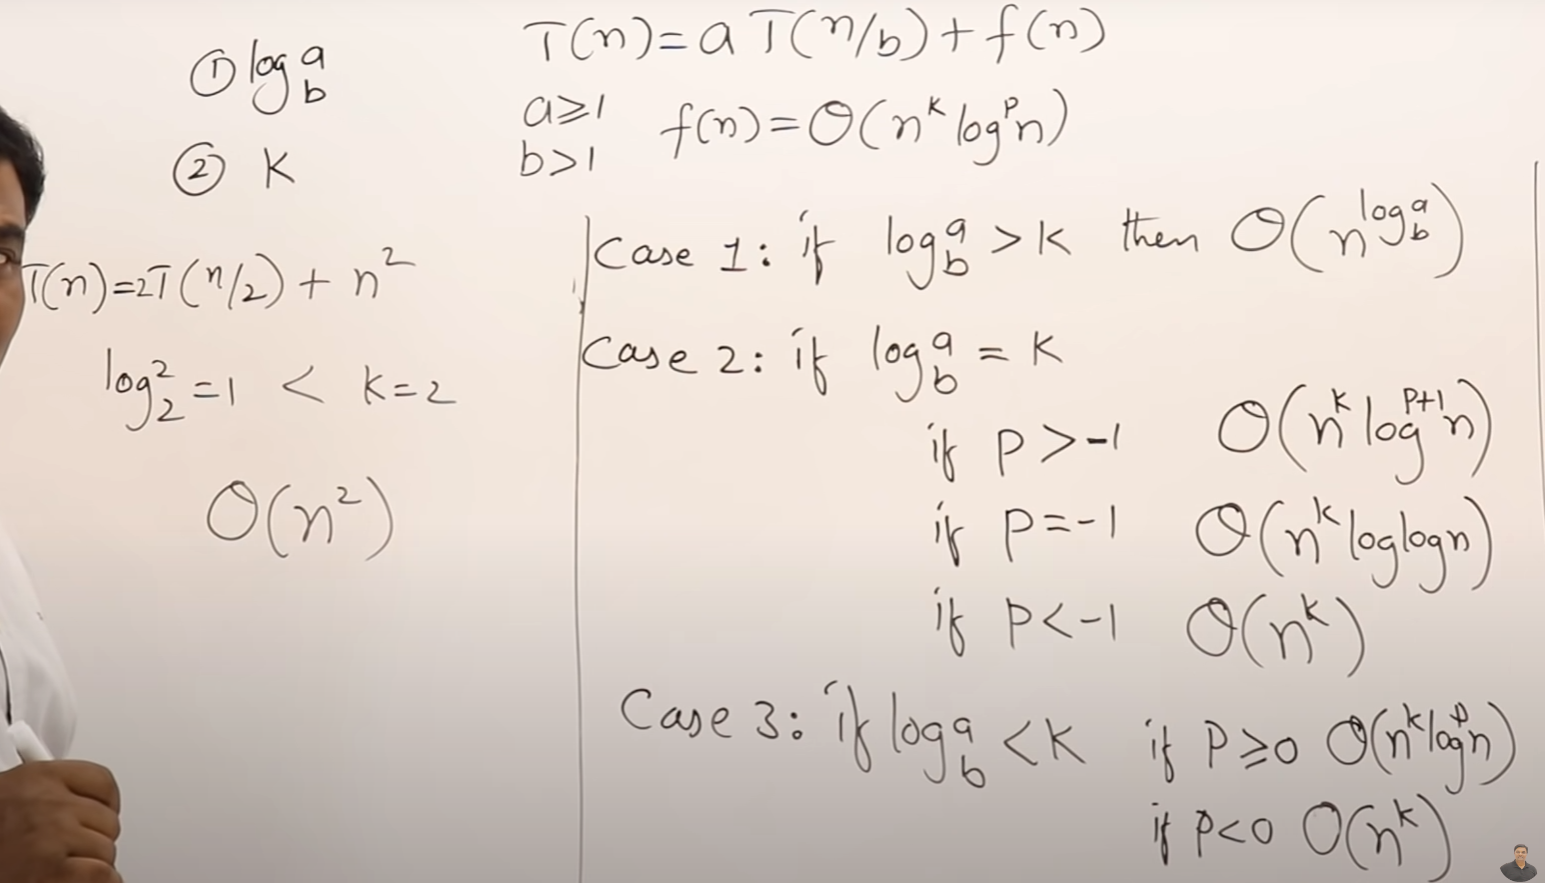 ① log_b^a
② K
T(n)=2T(n/2) + n^2
log_2^2 = 1 < K=2
Θ(n^2)
T(n)=aT(n/b)+f(n)
a≥1
b>1
f(n)=Θ(n^k log^p n)
Case 1: if log_b^a > K then Θ(n^(log_b^a))
Case 2: if log_b^a = K
if P>-1 Θ(n^k log^(p+1) n)
if P=-1 Θ(n^k loglogn)
if P<-1 Θ(n^k)
Case 3: if log_b^a < K if P≥0 Θ(n^k log^p n)
if P<0 O(n^k)